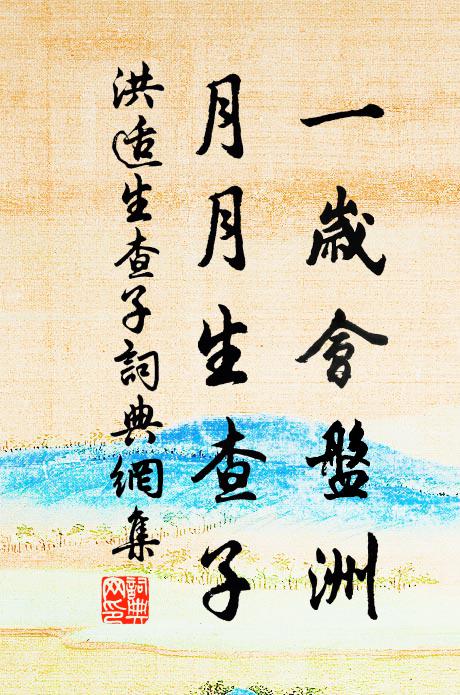 一歲會盤洲
月月生查子
洪适生查子詞典網集
詞典網印